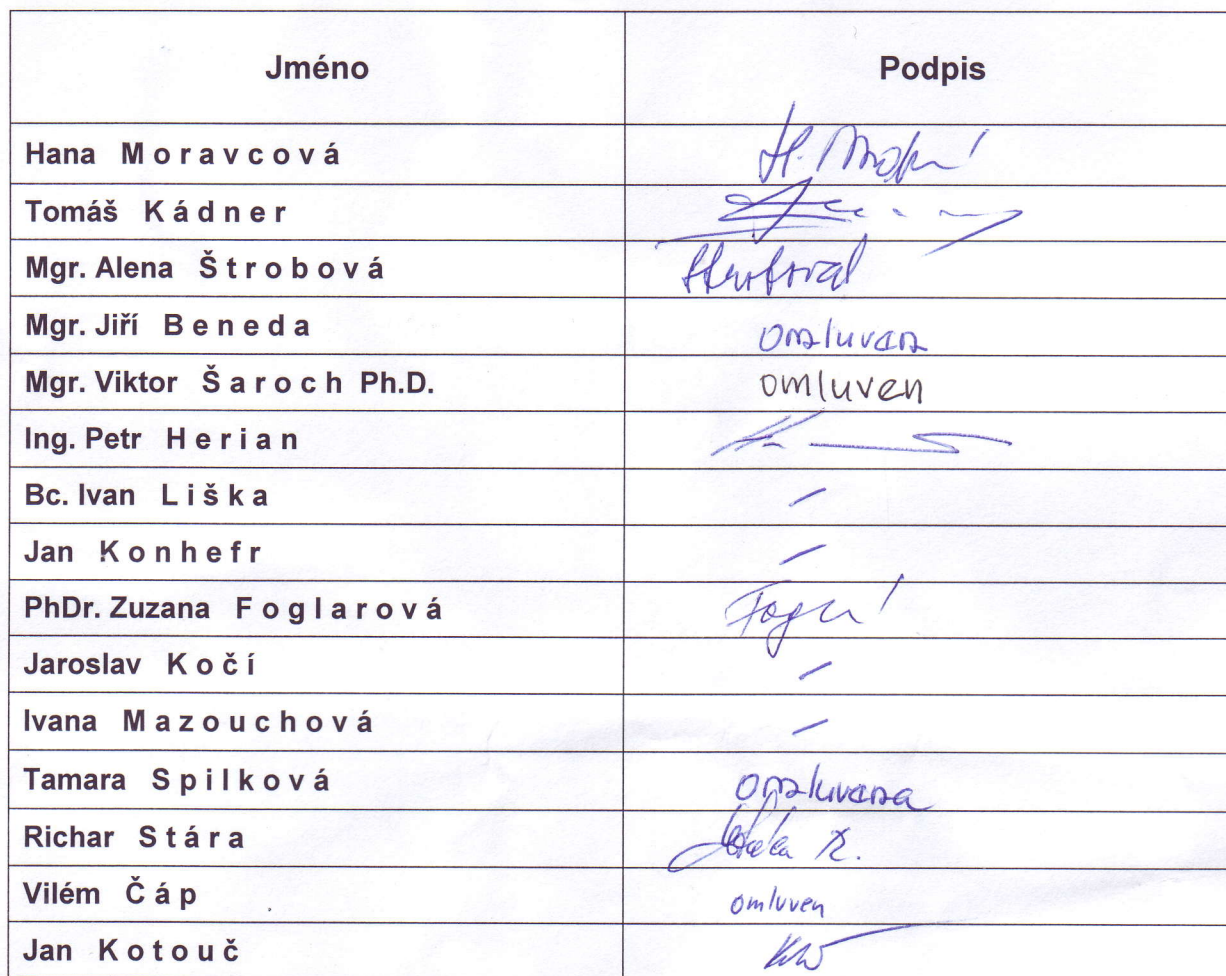 Jméno Podpis
Hana Moravcová
Tomáš Kádner
Mgr. Alena Štrobová
Mgr. Jiří Beneda omluven
Mgr. Viktor Šaroch Ph.D. omluven
Ing. Petr Herian
Bc. Ivan Liška –
Jan Konhefr –
PhDr. Zuzana Foglarová
Jaroslav Kočí –
Ivana Mazouchová –
Tamara Spilková omluvena
Richar Stára
Vilém Čáp omluven
Jan Kotouč